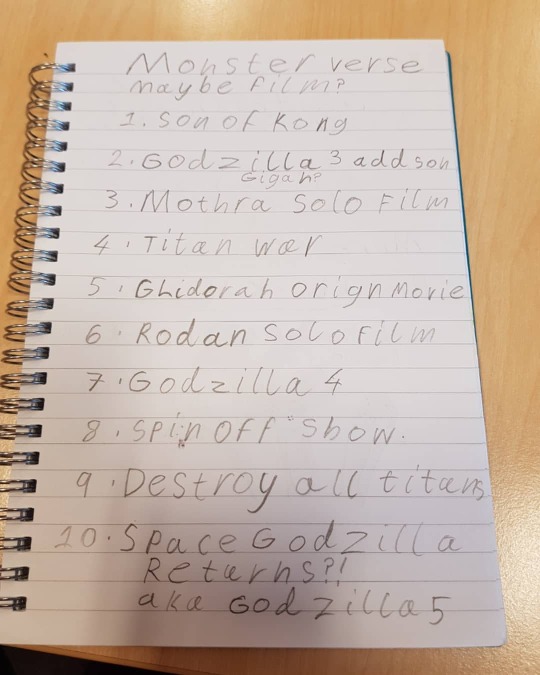 Monster verse
maybe film?
1. Son of Kong
2. Godzilla 3 add son
Gigan?
3. Mothra Solo Film
4. Titan war
5. Ghidorah orign Movie
6. Rodan Solo Film
7. Godzilla 4
8. Spin Off Show.
9. Destroy all titans
10. Space Godzilla
Returns?!
aka Godzilla 5